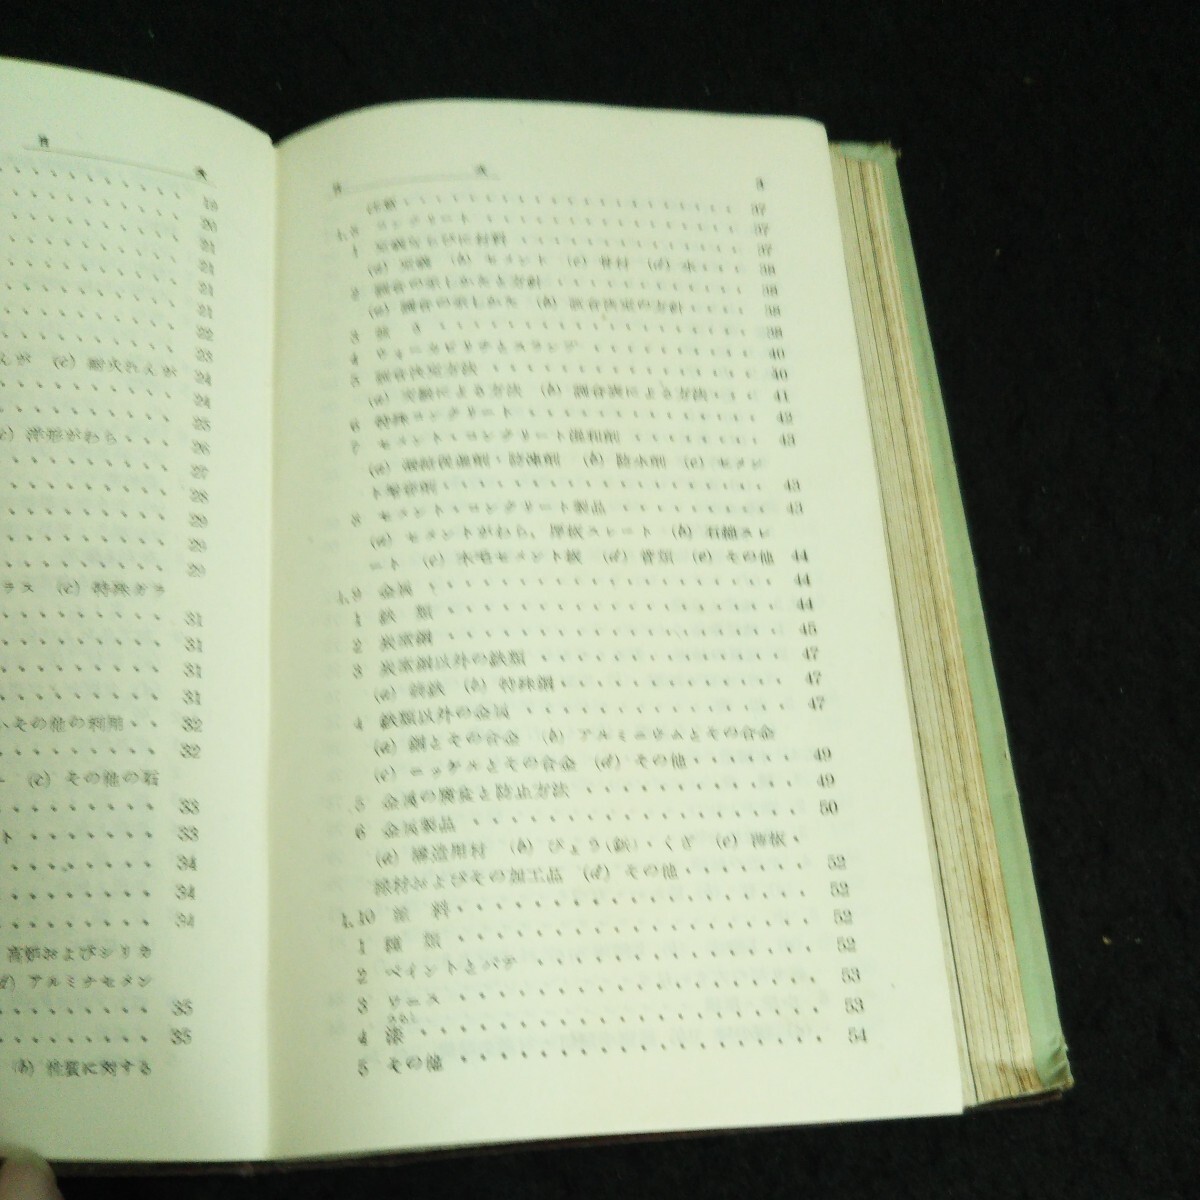 目 次
19
20
21
21
21
21
22
23
んが (c) 耐火れんが 24
24
25
(c) 洋形がわら 26
27
28
29
29
29
ラス (c) 特殊ガラ
31
31
31
31
その他の利用 32
32
(c) その他の石
33
ト 33
34
34
34
高炉およびシリカ
アルミナセメン
35
35
(b) 性質に対する
目 次 3
37
1.8 コンクリート 37
1 定義ならびに材料 37
(a) 定義 (b) セメント (c) 骨材 (d) 水 38
2 調合の示しかたと方針 38
(a) 調合の示しかた (b) 調合決定の方針 38
3 強さ 38
4 ウォーカビリチとスランプ 40
5 調合決定方法 40
(a) 実験による方法 (b) 調合表による方法 41
6 特殊コンクリート 42
7 セメント・コンクリート混和剤 43
(a) 凝結促進剤・防凍剤 (b) 防水剤 (c) セメン
ト着色剤 43
8 セメント・コンクリート製品 43
(a) セメントがわら，厚形スレート (b) 石綿スレ
ート (c) 木毛セメント板 (d) 管類 (e) その他 44
1.9 金属 44
1 鉄類 44
2 炭素鋼 45
3 炭素鋼以外の鉄類 47
(a) 鋳鉄 (b) 特殊鋼 47
4 鉄類以外の金属 47
(a) 銅とその合金 (b) アルミニウムとその合金
(c) ニッケルとその合金 (d) その他 49
5 金属の腐食と防止方法 49
6 金属製品 50
(a) 構造用材 (b) びょう(鋲)・くぎ (c) 薄板・
線材およびその加工品 (d) その他 52
1.10 塗料 52
1 種類 52
2 ペイントとパテ 52
3 ワニス 53
4 漆 53
5 その他 54